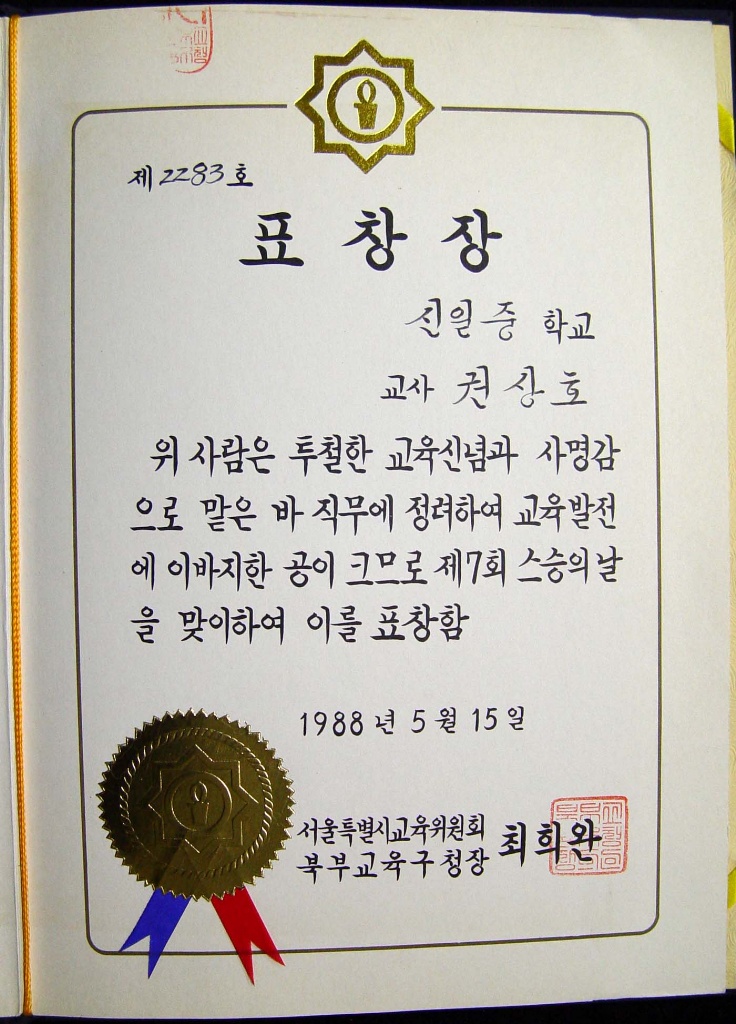 제 2283 호
표 창 장
신일중 학교
교사 권상호
위 사람은 투철한 교육신념과 사명감
으로 맡은 바 직무에 정려하여 교육발전
에 이바지한 공이 크므로 제7회 스승의날
을 맞이하여 이를 표창함
1988 년 5 월 15 일
서울특별시교육위원회
북부교육구청장 최희완